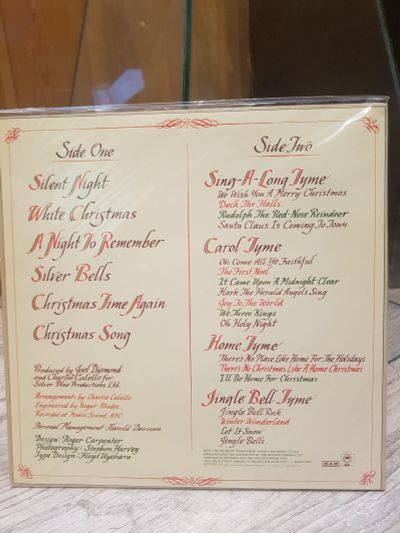 Side One
Silent Night
White Christmas
A Night To Remember
Silver Bells
Christmas Time Again
Christmas Song
Produced by Joel Diamond
and Charlie Calello for
Silver Blue Productions Ltd.
Arrangements by Charlie Calello
Engineered by Roger Rhodes
Recorded at Media Sound, NYC.
Personal Management: Harold Davison
Design: Roger Carpenter
Photography: Stephen Harvey
Type Design: Floyd Uyehara
Side Two
Sing-A-Long Tyme
We Wish You A Merry Christmas
Deck The Halls
Rudolph The Red-Nose Reindeer
Santa Claus Is Coming To Town
Carol Tyme
Oh Come All Ye Faithful
The First Noel
It Came Upon A Midnight Clear
Hark The Herald Angels Sing
Joy To The World
We Three Kings
Oh Holy Night
Home Tyme
There's No Place Like Home For The Holidays
There's No Christmas Like A Home Christmas
I'll Be Home For Christmas
Jingle Bell Tyme
Jingle Bell Rock
Winter Wonderland
Let It Snow
Jingle Bells